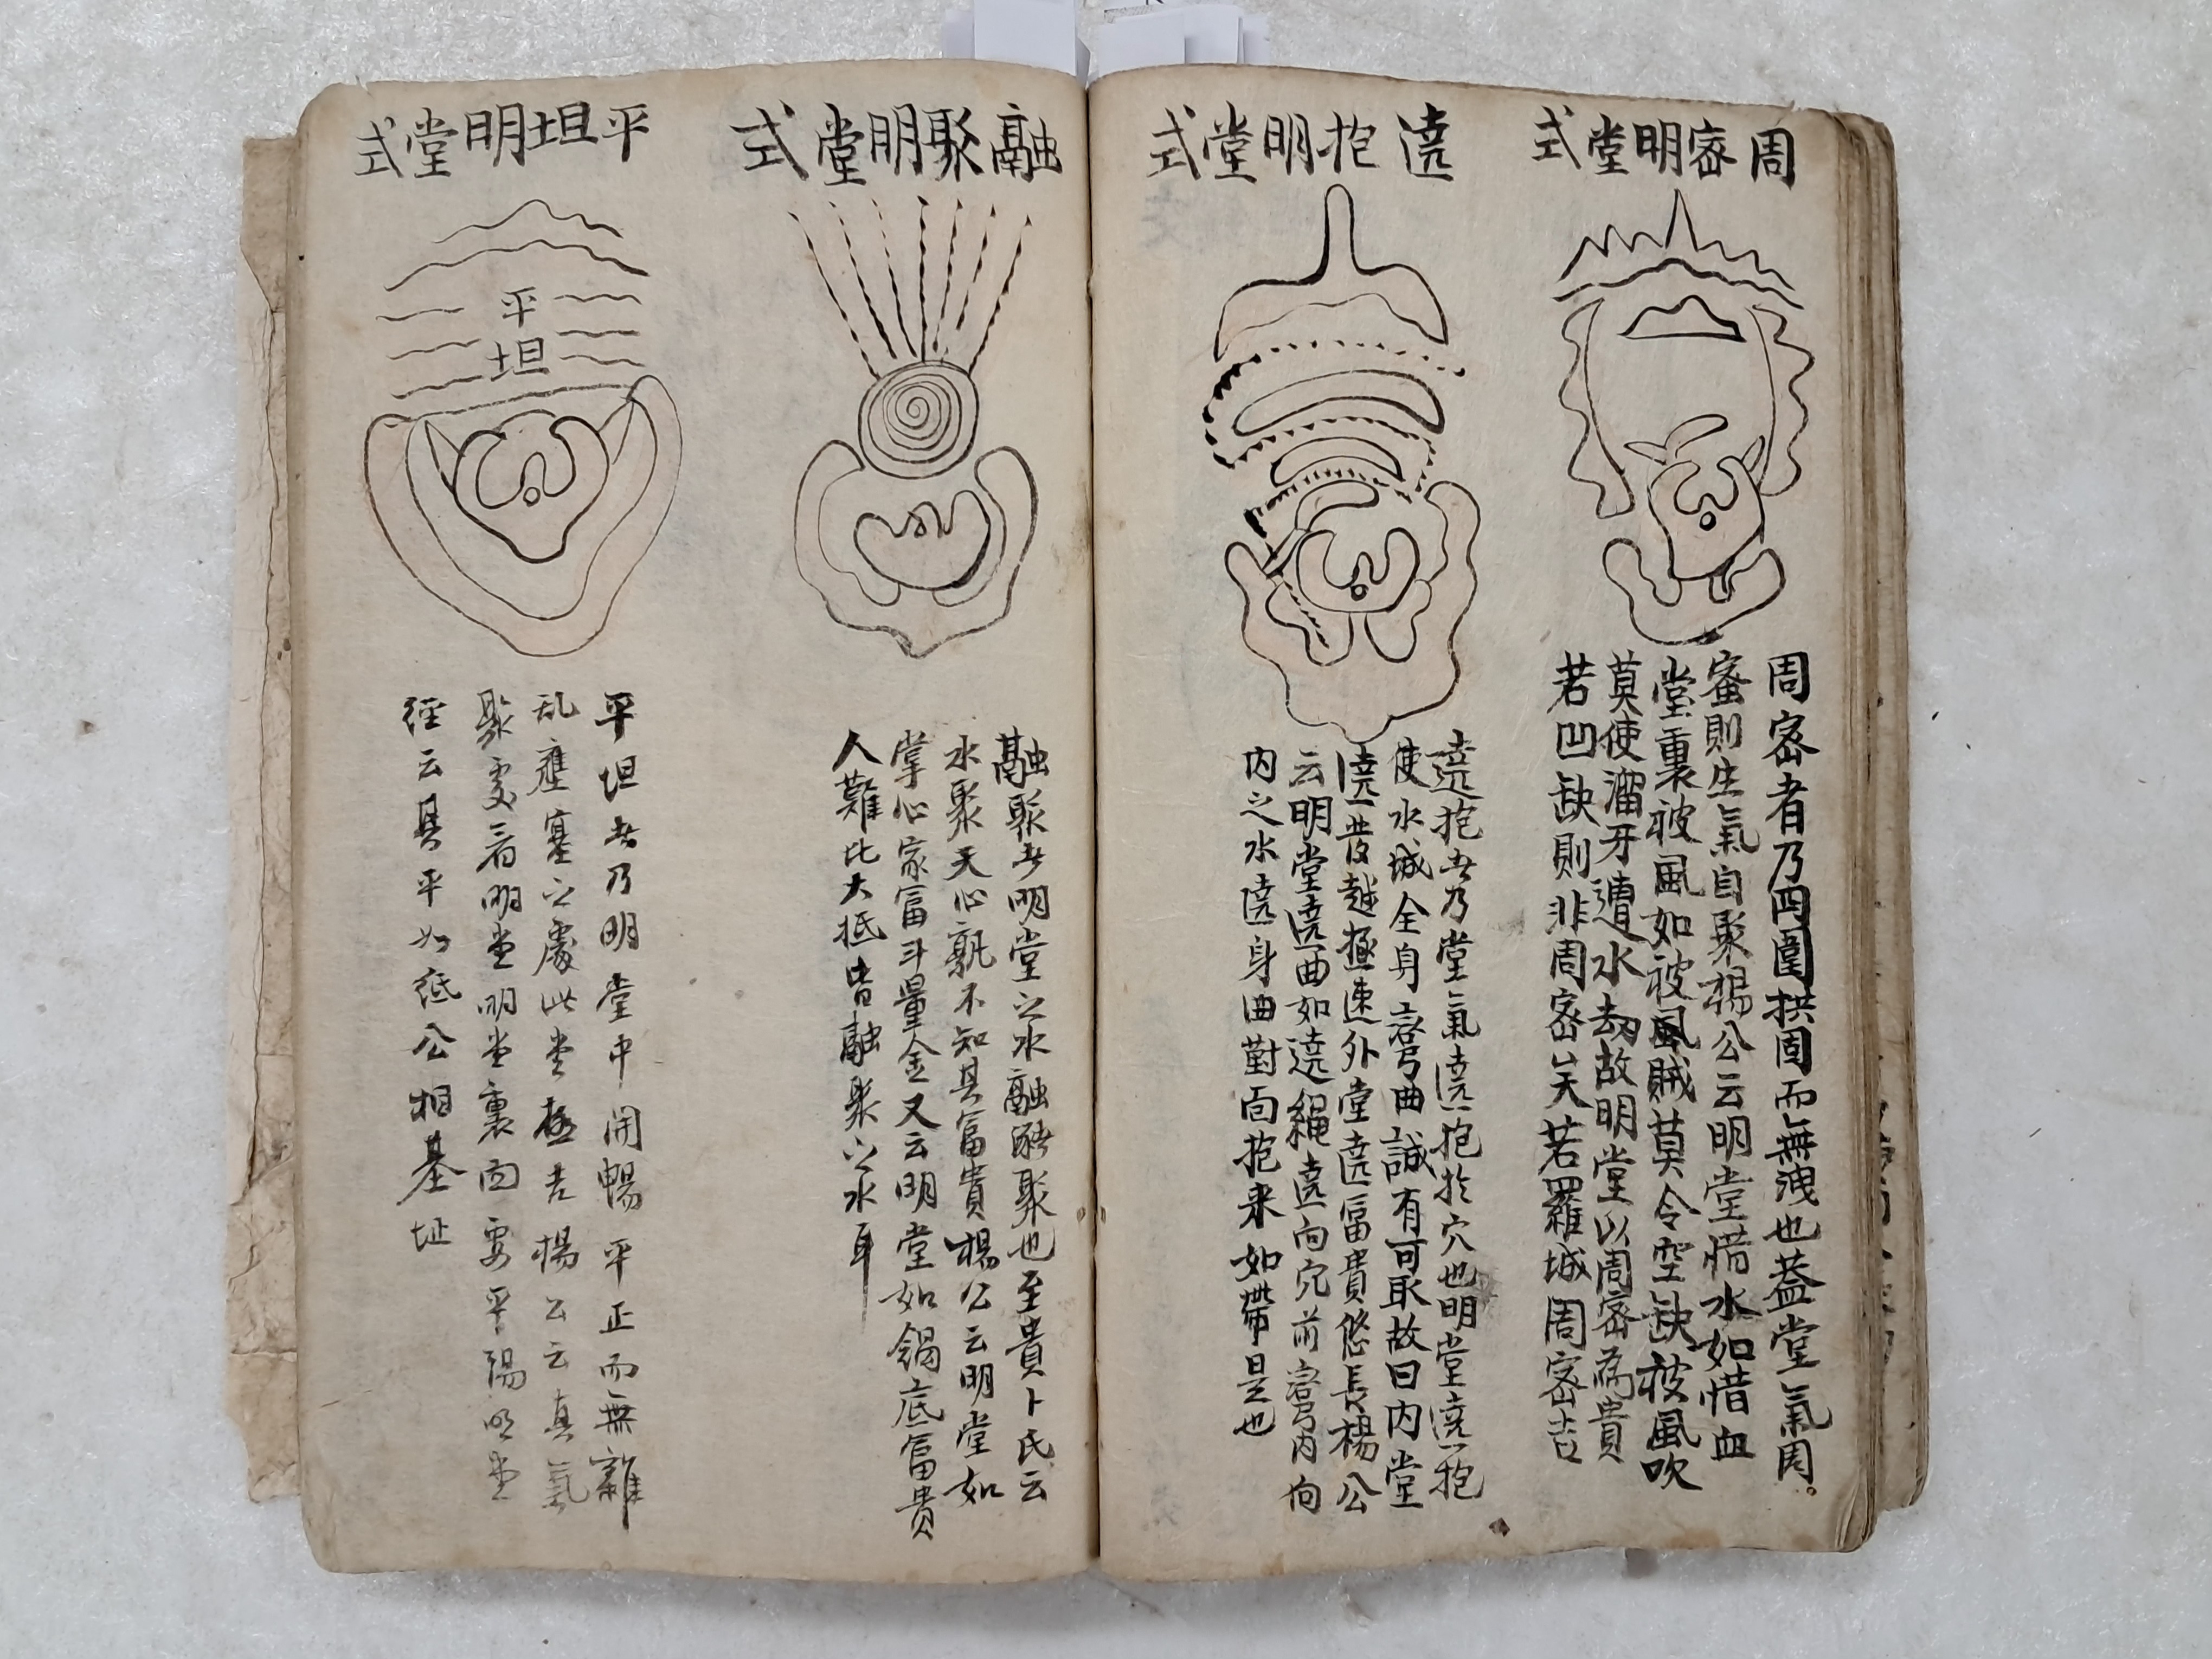 周密明堂式
周密者乃四圍拱固而無洩也蓋堂氣周
密則生氣自聚楊公云明堂惜水如惜血
堂裏被風如被風賊莫令空缺被風吹
莫使溜牙遭水劫故明堂以周密為貴
若凹缺則非周密矣若羅城周密吉
遶抱明堂式
遶抱者乃堂氣遶抱於穴也明堂遶抱
使水城全身彎曲誠有可取故曰内堂
遶發越極速外堂遶富貴悠長楊公
云明堂遶曲如遶繩遶向穴前彎内向
内之水遶身曲對面抱来如帶是也
融聚明堂式
融聚者明堂之水融瀦聚也至貴卜氏云
水聚天心孰不知其富貴楊公云明堂如
掌心家富斗量金又云明堂如鍋底富貴
人難比大抵皆融聚之水耳
平坦明堂式
平
坦
平坦者乃明堂中開暢平正而無雜
乱壅塞之處此堂極吉楊公云真氣
聚處看明堂明堂裏面要平陽明堂
經云其平如紙公相基址